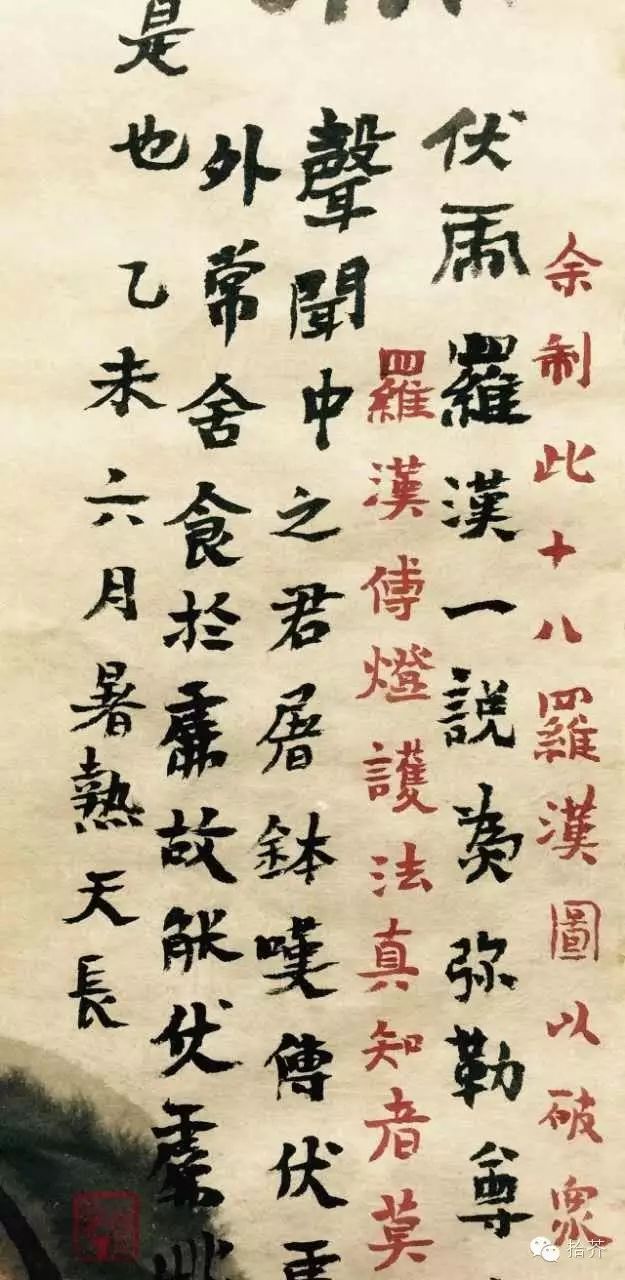 余制此十八羅漢圖以破眾
伏虎羅漢一說為弥勒尊
羅漢傳燈護法真知者莫
聲聞中之君屠鉢嘆傳伏虎
外常舍食於虎故能伏虎此
是也乙未六月暑熱天長
拾芥